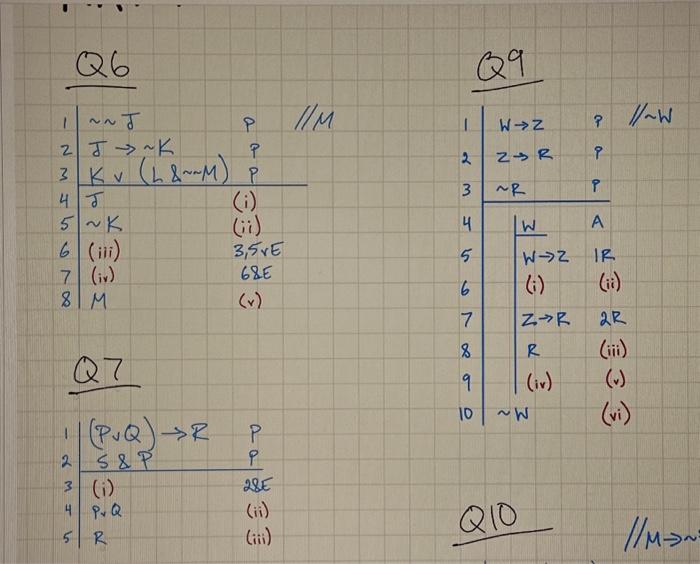 Q6
1 ~~J P //M
2 J → ~K P
3 K v (L & ~~M) P
4 J (i)
5 ~K (ii)
6 (iii) 3,5vE
7 (iv) 6&E
8 M (v)
Q7
1 (PvQ) → R P
2 S & P P
3 (i) 2&E
4 PvQ (ii)
5 R (iii)
Q9
1 W→Z P //~W
2 Z→R P
3 ~R P
4 W A
5 W→Z 1R
6 (i) (ii)
7 Z→R 2R
8 R (iii)
9 (iv) (v)
10 ~W (vi)
Q10
//M→~